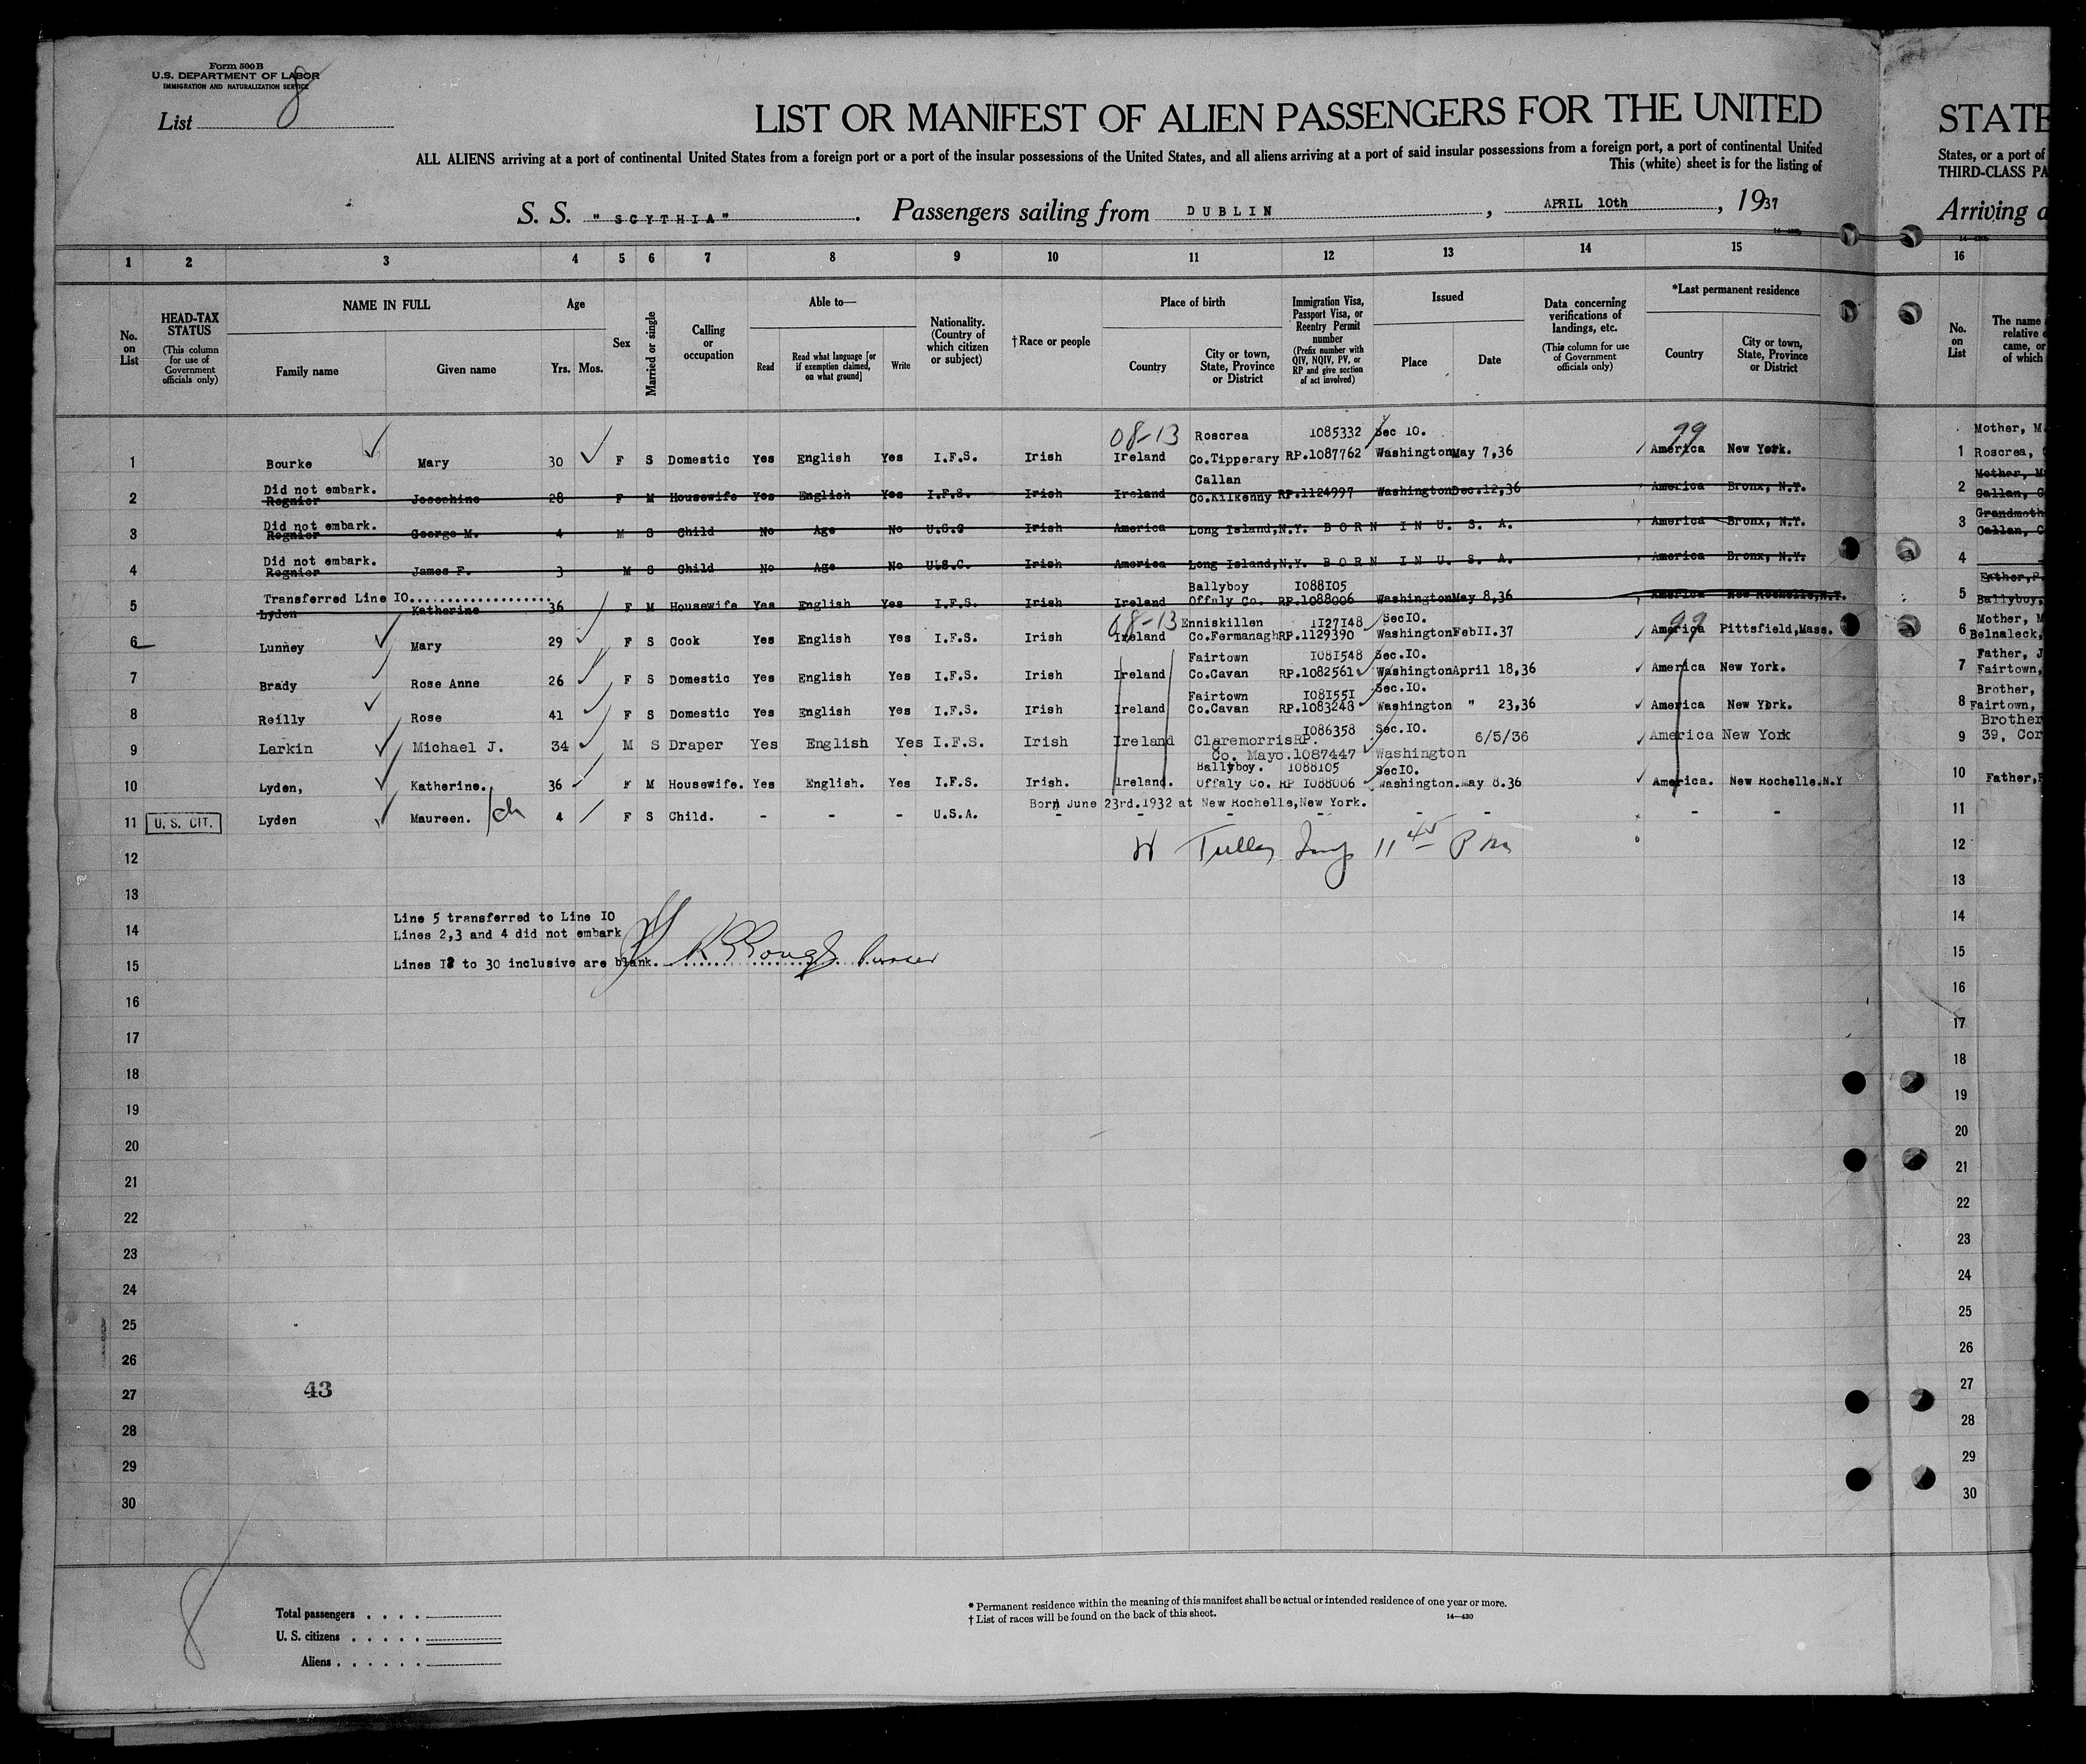 Form 500 B
U.S. DEPARTMENT OF LABOR
IMMIGRATION AND NATURALIZATION SERVICE
List 8
LIST OR MANIFEST OF ALIEN PASSENGERS FOR THE UNITED
ALL ALIENS arriving at a port of continental United States from a foreign port or a port of the insular possessions of the United States, and all aliens arriving at a port of said insular possessions from a foreign port, a port of continental United
This (white) sheet is for the listing of
S. S. "SCYTHIA". Passengers sailing from DUBLIN, APRIL 10th, 1937
STATE
States, or a port of
THIRD-CLASS PA
Arriving a
1 2 3 4 5 6 7 8 9 10 11 12 13 14 15 16
No. on List
HEAD-TAX STATUS
(This column for use of Government officials only)
NAME IN FULL
Family name
Given name
Age
Yrs. Mos.
Sex
Married or single
Calling or occupation
Able to—
Read
Read what language [or if exemption claimed, on what ground]
Write
Nationality. (Country of which citizen or subject)
†Race or people
Place of birth
Country
City or town, State, Province or District
Immigration Visa, Passport Visa, or Reentry Permit number
(Prefix number with QIV, NQIV, PV, or RP and give section of act involved)
Issued
Place
Date
Data concerning verifications of landings, etc.
(This column for use of Government officials only)
*Last permanent residence
Country
City or town, State, Province or District
No. on List
The name
relative
came, or
of which
08-13 Roscrea 1085332 Sec 10. 99 Mother, M
1 Bourke Mary 30 F S Domestic Yes English Yes I.F.S. Irish Ireland Co.Tipperary RP.1087762 Washington May 7,36 America New York. 1 Roscrea,
Did not embark. Callan Mother, M
2 Regnier Josephine 28 F M Housewife Yes English Yes I.F.S. Irish Ireland Co.Kilkenny RP.1124997 Washington Dec.12,36 America Bronx, N.Y. 2 Callan, C
Did not embark. Grandmoth
3 Regnier George M. 4 M S Child No Age No U.S.C Irish America Long Island,N.Y. BORN IN U. S. A. America Bronx, N.Y. 3 Callan, C
Did not embark.
4 Regnier James F. 3 M S Child No Age No U.S.C. Irish America Long Island,N.Y. BORN IN U. S. A. America Bronx, N.Y. 4
Transferred Line IO................... Ballyboy I088I05 Father,P.
5 Lyden Katherine 36 F M Housewife Yes English Yes I.F.S. Irish Ireland Offaly Co. RP.1088006 Washington May 8,36 America New Rochelle,N.Y. 5 Ballyboy,
08-13 Enniskillen II27I48 SecIO. 99 Mother, M
6 Lunney Mary 29 F S Cook Yes English Yes I.F.S. Irish Ireland Co.Fermanagh RP.1129390 Washington FebII.37 America Pittsfield,Mass. 6 Belnaleck,
Fairtown I08I548 Sec.IO. Father, J
7 Brady Rose Anne 26 F S Domestic Yes English Yes I.F.S. Irish Ireland Co.Cavan RP.1082561 Washington April 18,36 America New York. 7 Fairtown,
Fairtown I08I55I Sec.IO. Brother,
8 Reilly Rose 41 F S Domestic Yes English Yes I.F.S. Irish Ireland Co.Cavan RP.1083248 Washington " 23,36 America New York. 8 Fairtown,
I086358 Sec.IO. Brother
9 Larkin Michael J. 34 M S Draper Yes English Yes I.F.S. Irish Ireland Claremorris RP. 6/5/36 America New York 9 39, Cor
Co. Mayo.1087447 Washington
Ballyboy. I088I05 SecIO.
10 Lyden, Katherine. 36 F M Housewife. Yes English. Yes I.F.S. Irish. Ireland. Offaly Co. RP I088006 Washington. May 8.36 America. New Rochelle.N.Y 10 Father,
Born June 23rd.1932 at New Rochelle,New York.
11 U. S. CIT. Lyden Maureen. ch 4 F S Child. - - - U.S.A. - - - - - - - - 11
12 11 45 P m 12
13 13
Line 5 transferred to Line IO
14 Lines 2,3 and 4 did not embark 14
15 Lines I2 to 30 inclusive are blank. Purser 15
16 16
17 17
18 18
19 19
20 20
21 21
22 22
23 23
24 24
25 25
26 26
27 43 27
28 28
29 29
30 30
8
Total passengers . . . .
U. S. citizens . . . . .
Aliens . . . . . .
* Permanent residence within the meaning of this manifest shall be actual or intended residence of one year or more.
† List of races will be found on the back of this sheet. 14—430